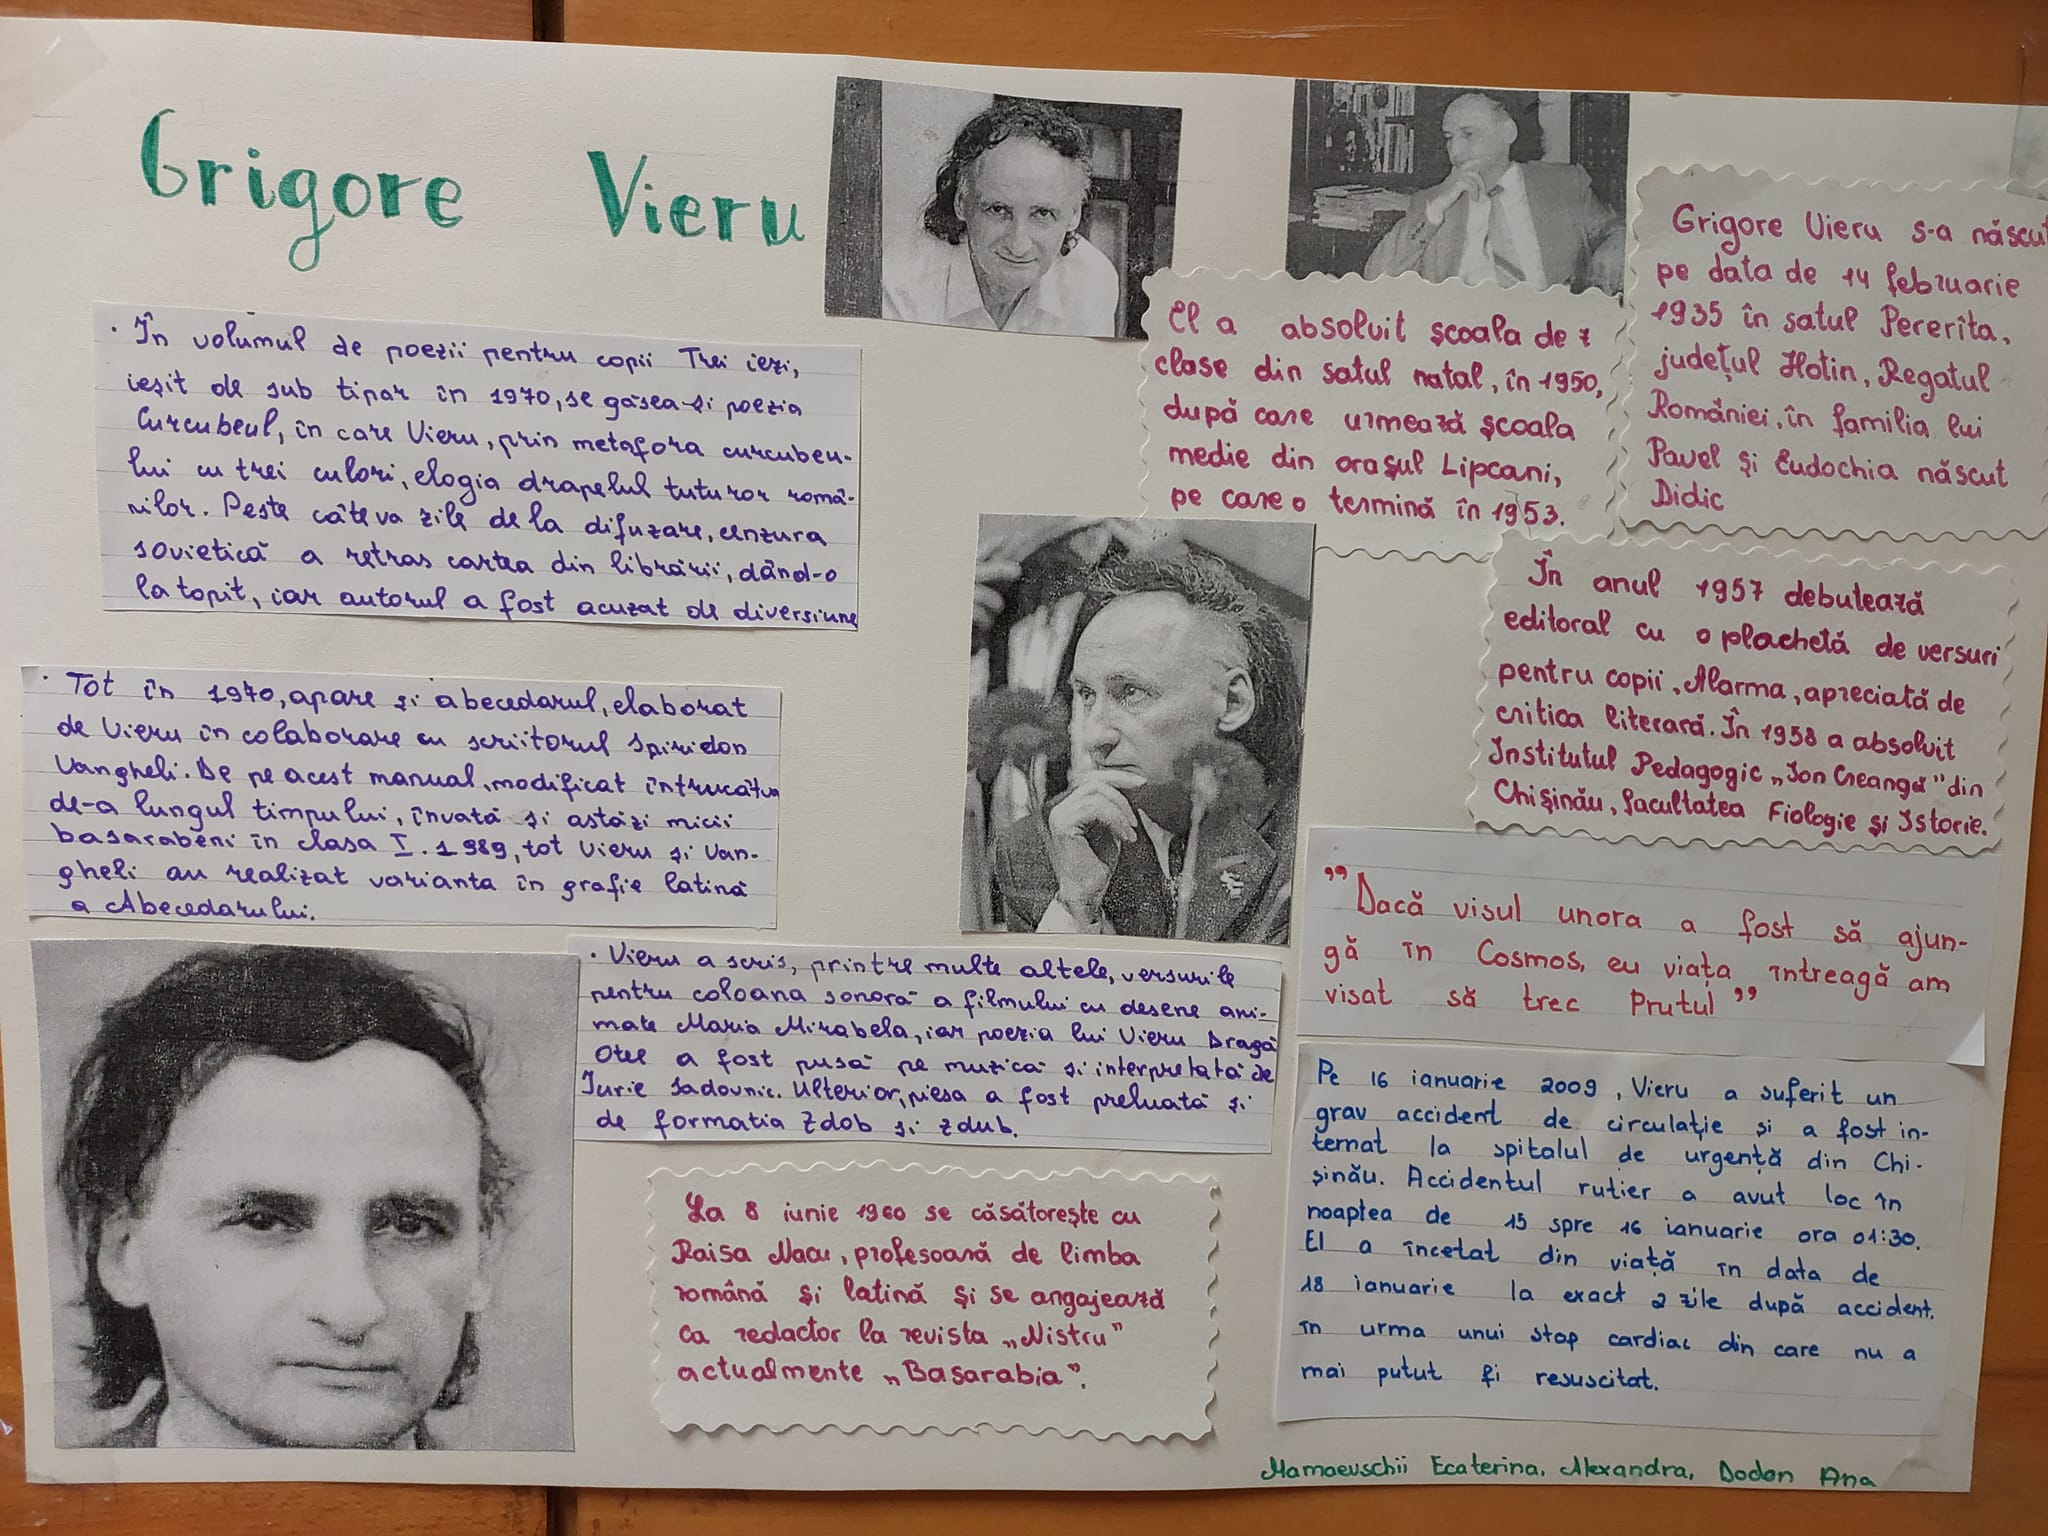 Grigore Vieru
· În volumul de poezii pentru copii Trei iezi,
ieșit de sub tipar în 1970, se găsea și poezia
Curcubeul, în care Vieru, prin metafora curcubeu-
lui cu trei culori, elogia drapelul tuturor româ-
nilor. Peste câteva zile de la difuzare, cenzura
sovietică a retras cartea din librării, dând-o
la topit, iar autorul a fost acuzat de diversiune
· Tot în 1970, apare și abecedarul, elaborat
de Vieru în colaborare cu scriitorul Spiridon
Vangheli. De pe acest manual, modificat întrucâtva
de-a lungul timpului, învată și astăzi micii
basarabeni în clasa I. 1989, tot Vieru și Van-
gheli au realizat varianta în grafie latină
a Abecedarului.
· Vieru a scris, printre multe altele, versurile
pentru coloana sonoră a filmului cu desene ani-
mate Maria Mirabela, iar poezia lui Vieru Dragă
Otee a fost pusă pe muzică și interpretată de
Iurie Sadovnic. Ulterior, piesa a fost preluată și
de formatia Zdob și zdub.
La 8 iunie 1960 se căsătorește cu
Raisa Nacu, profesoară de limba
română și latină și se angajează
ca redactor la revista „Nistru"
actualmente „Basarabia".
El a absolvit școala de 7
clase din satul natal, în 1950,
după care urmează școala
medie din orașul Lipcani,
pe care o termină în 1953.
Grigore Vieru s-a născut
pe data de 14 februarie
1935 în satul Pererîta,
județul Hotin, Regatul
României, în familia lui
Pavel și Eudochia născut
Didic
În anul 1957 debutează
editoral cu o plachetă de versuri
pentru copii, Alarma, apreciată de
critica literară. În 1958 a absolvit
Institutul Pedagogic „Ion Creangă" din
Chișinău, facultatea Fiologie și Istorie.
"Dacă visul unora a fost să ajun-
gă în Cosmos, eu viața întreagă am
visat să trec Prutul"
Pe 16 ianuarie 2009, Vieru a suferit un
grav accident de circulație și a fost in-
ternat la spitalul de urgență din Chi-
șinău. Accidentul rutier a avut loc în
noaptea de 15 spre 16 ianuarie ora 01:30.
El a încetat din viață în data de
18 ianuarie la exact 2 zile după accident.
în urma unui stop cardiac din care nu a
mai putut fi resuscitat.
Mamaevschii Ecaterina, Alexandra, Dodon Ana